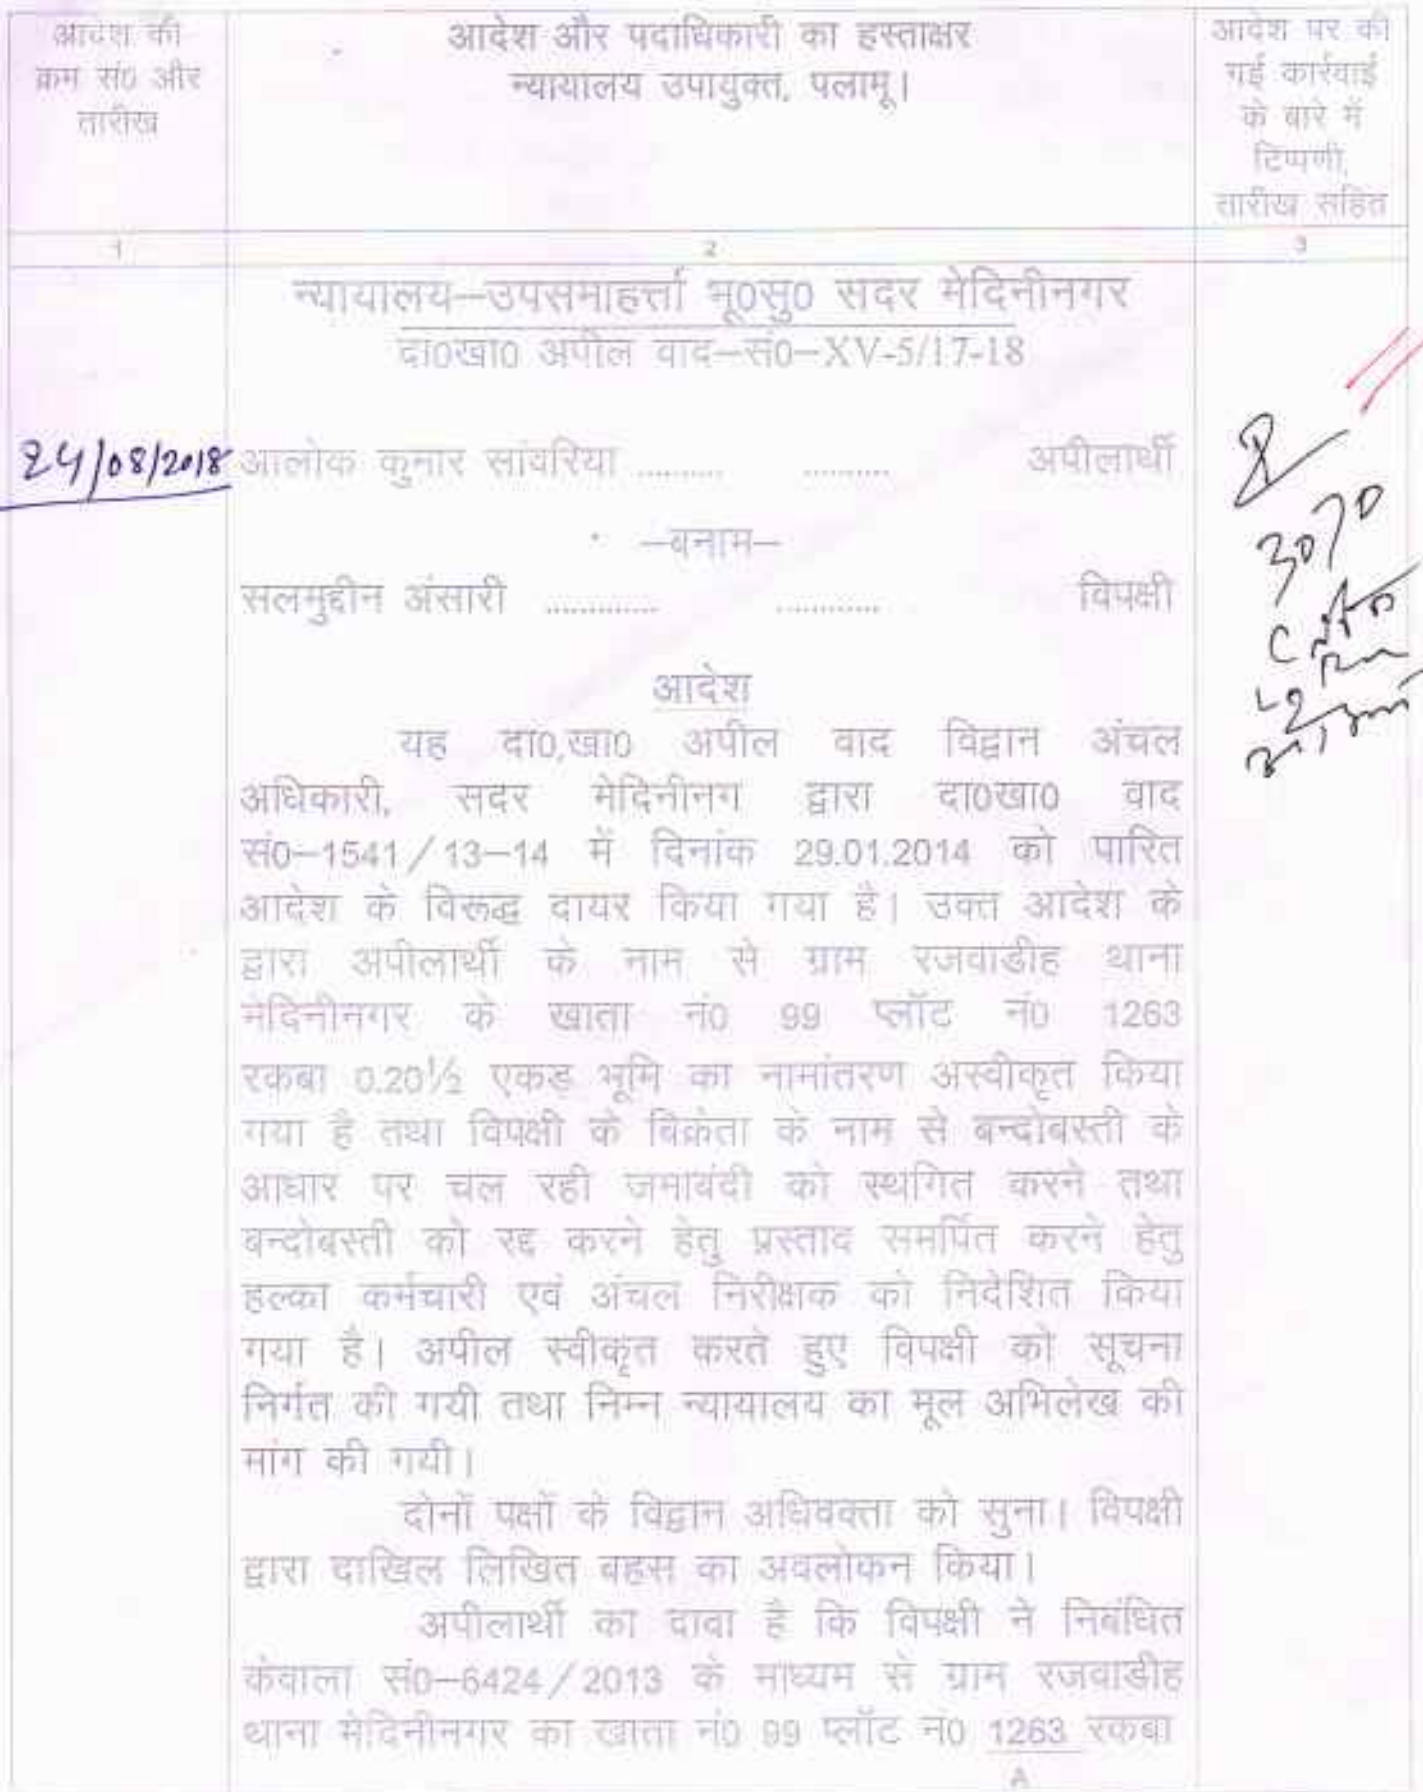 आदेश की
क्रम सं0 और
तारीख
आदेश और पदाधिकारी का हस्ताक्षर
न्यायालय उपायुक्त, पलामू।
आदेश पर की
गई कार्रवाई
के बारे में
टिप्पणी,
तारीख सहित
1
2
3
न्यायालय–उपसमाहर्त्ता भू0सु0 सदर मेदिनीनगर
दा0खा0 अपील वाद–सं0–XV-5/17-18
24/08/2018
आलोक कुमार सांवरिया .......... .......... अपीलार्थी
–बनाम–
सलमुद्दीन अंसारी ............. ............ विपक्षी
3070
आदेश
यह दा0,खा0 अपील वाद विद्वान अंचल
अधिकारी, सदर मेदिनीनग द्वारा दा0खा0 वाद
सं0–1541/13–14 में दिनांक 29.01.2014 को पारित
आदेश के विरूद्ध दायर किया गया है। उक्त आदेश के
द्वारा अपीलार्थी के नाम से ग्राम रजवाडीह थाना
मेदिनीनगर के खाता नं0 99 प्लॉट नं0 1263
रकबा 0.20½ एकड़ भूमि का नामांतरण अस्वीकृत किया
गया है तथा विपक्षी के विक्रेता के नाम से बन्दोबस्ती के
आधार पर चल रही जमाबंदी को स्थगित करने तथा
बन्दोबस्ती को रद्द करने हेतु प्रस्ताव समर्पित करने हेतु
हल्का कर्मचारी एवं अंचल निरीक्षक को निदेशित किया
गया है। अपील स्वीकृत करते हुए विपक्षी को सूचना
निर्गत की गयी तथा निम्न न्यायालय का मूल अभिलेख की
मांग की गयी।
दोनों पक्षों के विद्वान अधिवक्ता को सुना। विपक्षी
द्वारा दाखिल लिखित बहस का अवलोकन किया।
अपीलार्थी का दावा है कि विपक्षी ने निबंधित
केवाला सं0–6424/2013 के माध्यम से ग्राम रजवाडीह
थाना मेदिनीनगर का खाता नं0 99 प्लॉट नं0 1263 रकबा
A